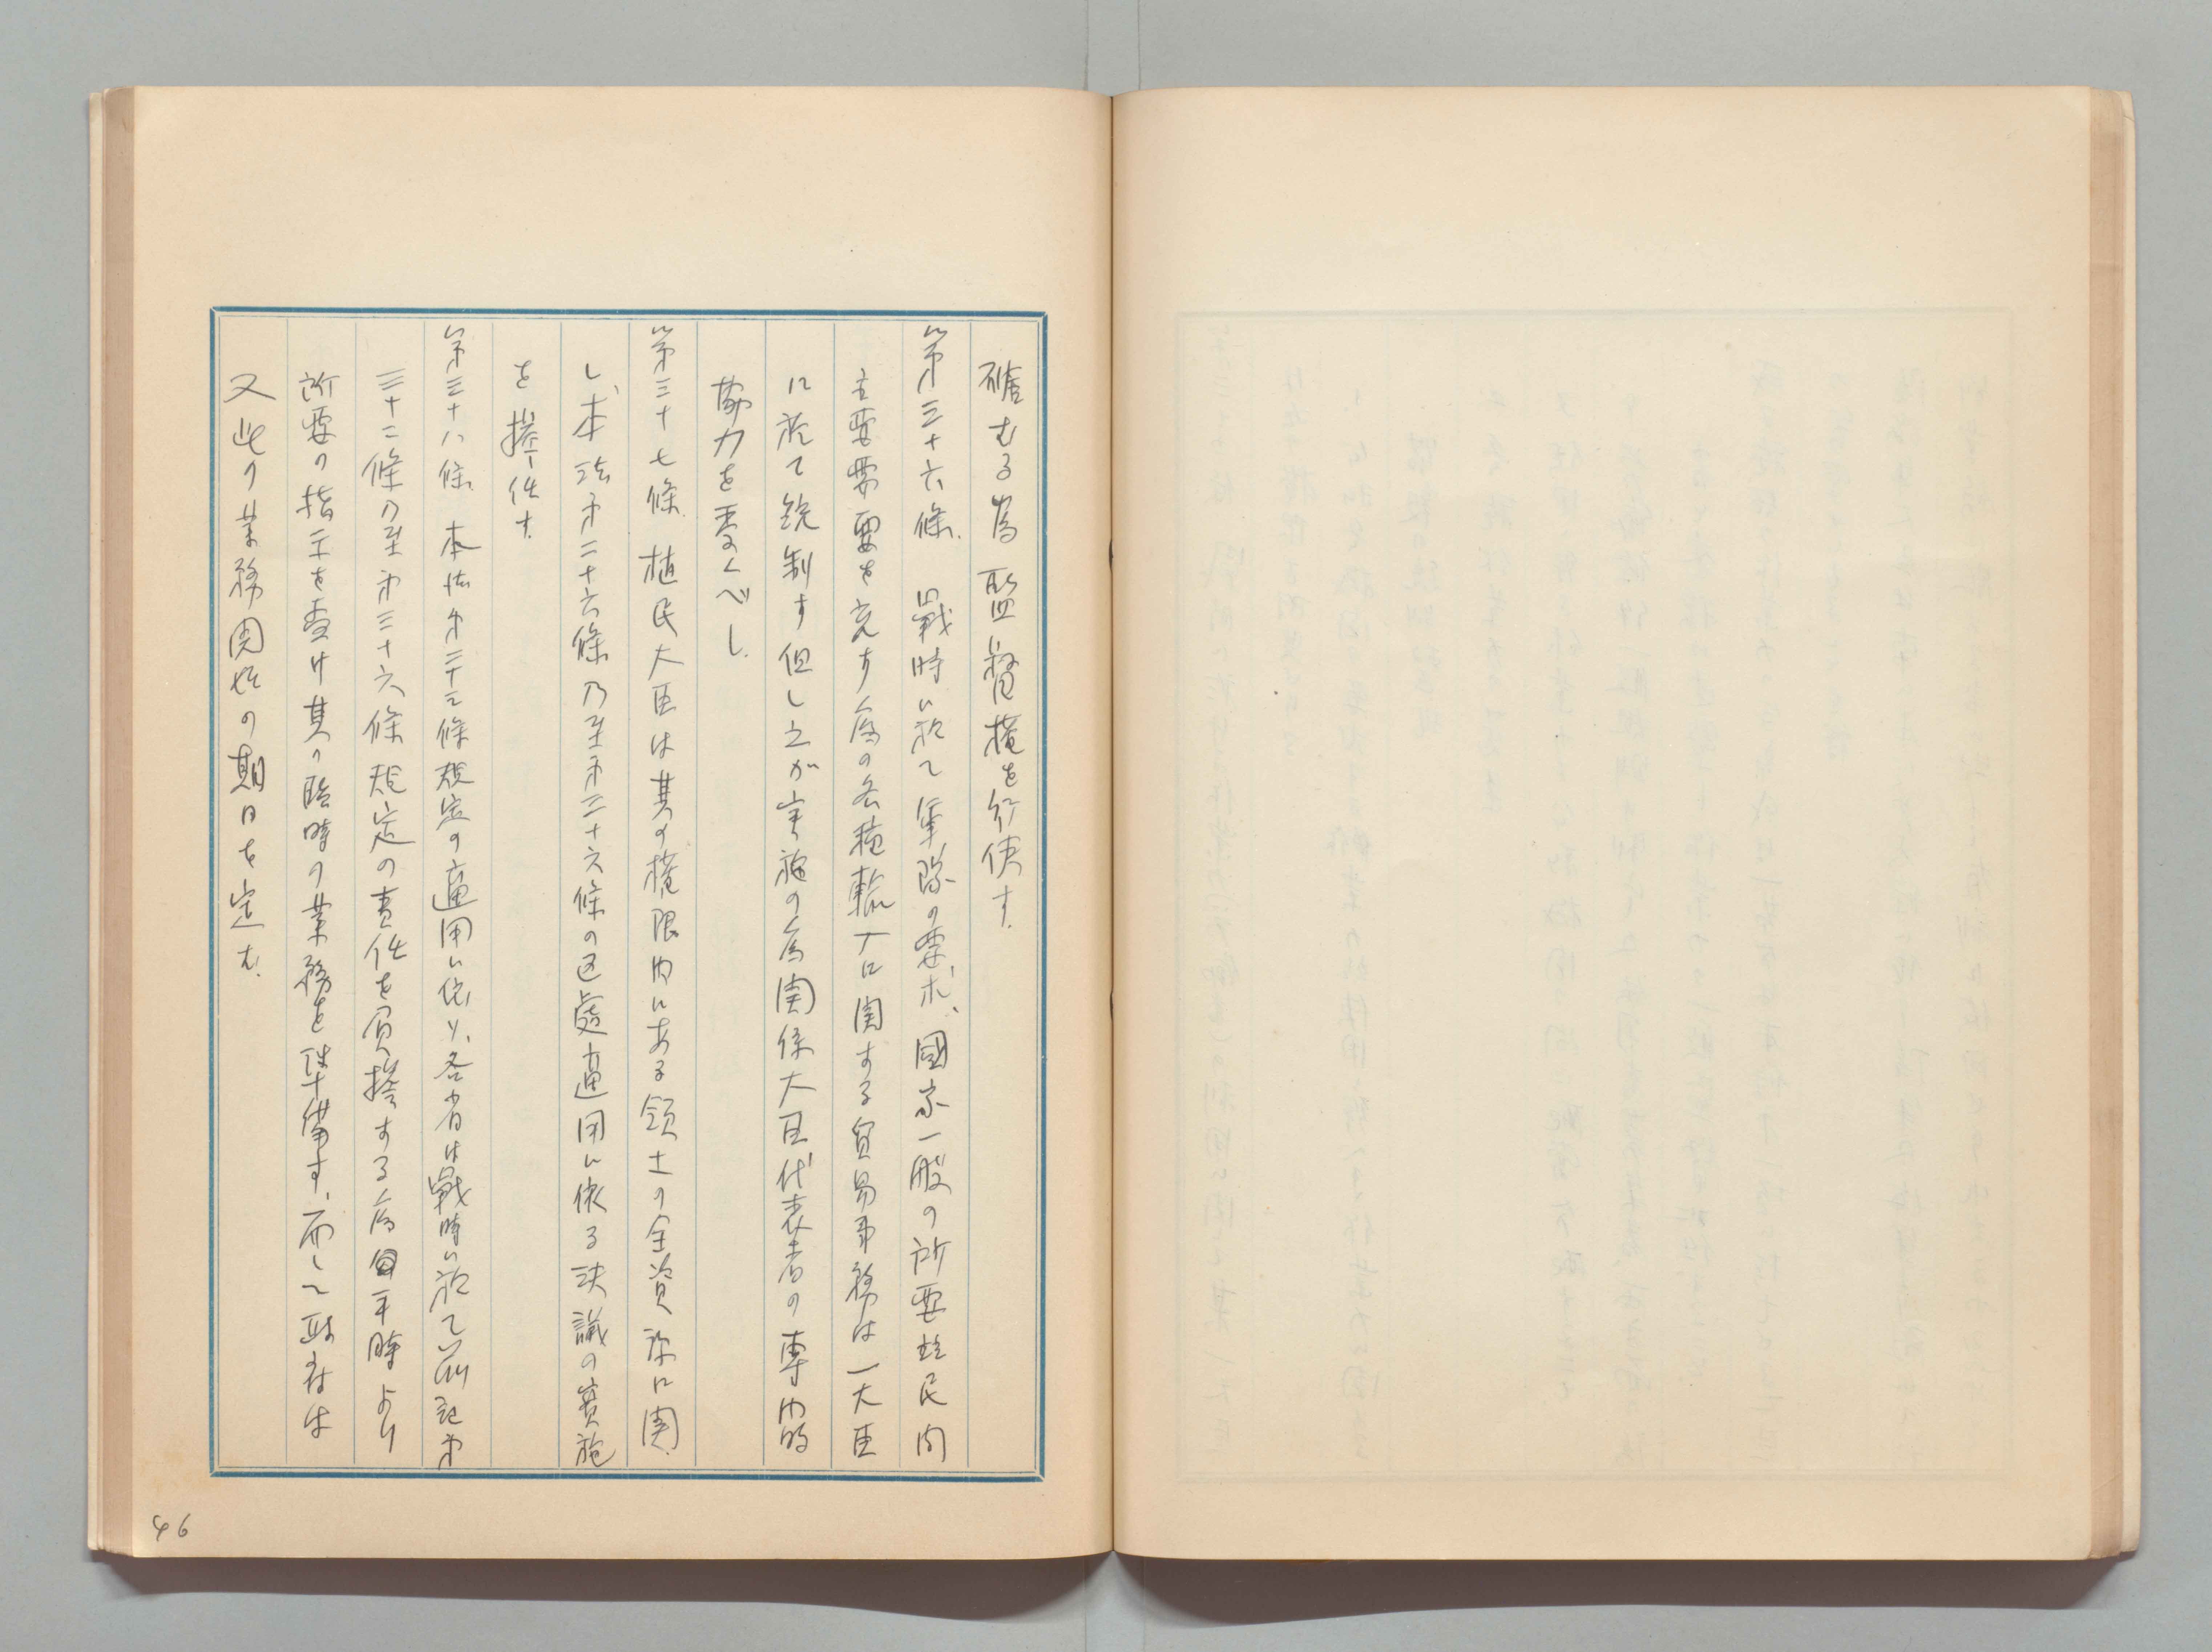 確むる為監督権を行使す.
第三十六條. 戦時に於て軍隊の要求、國家一般の所要並民間
主要需要を充す為の各種輸入に関する貿易事務は一大臣
に於て統制す但し之が実施の為関係大臣代表者の専門的
協力を受くべし.
第三十七條. 植民大臣は其の権限内にある領土の全資源に関
し、本法第二十六條乃至第三十六條の処適用に依る決議の實施
を擔任す.
第三十八條. 本法第三十三條規定の適用に依り、各省は戦時に於て前記第
三十二條乃至第三十六條規定の責任を負擔する為平時より
所要の指示を受け其の臨時の業務を準備す、而して政府は
又此の業務開始の期日を定む.
46